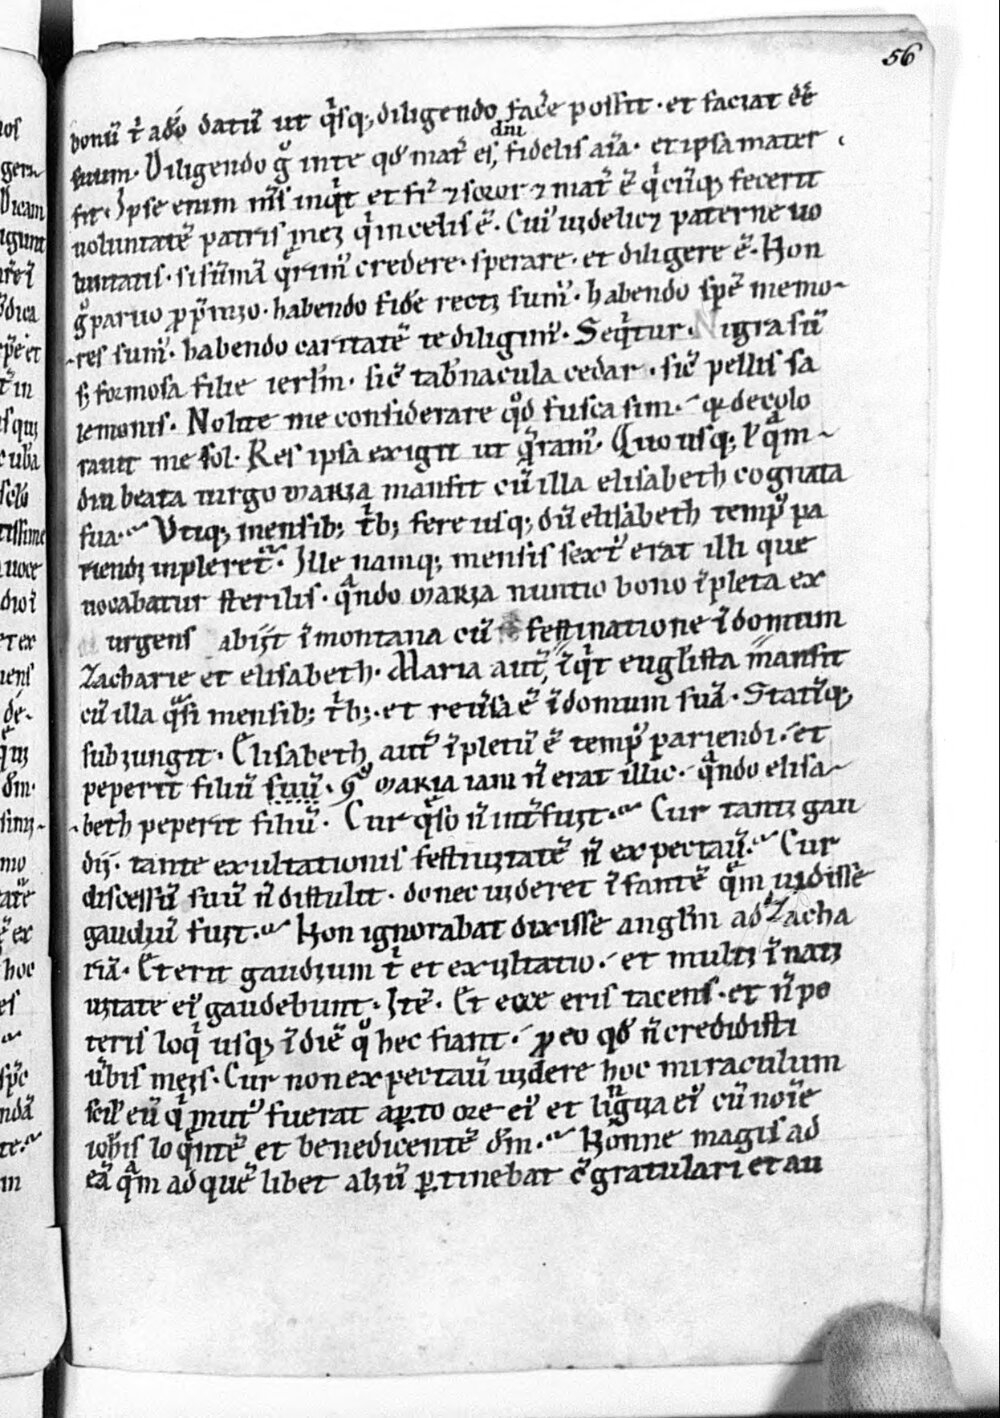 56
bonū t̄ adō datū ut q̇sq; diligendo facͤe possit · et faciat ēē
suum · Diligendo g̊ inte qd̄ mat̄ es, dn̄i fidelis aīa · et ipsa mater
fit · Ipse enim n̄s inq̇t et fr̄ ⁊ soror ⁊ mat̄ ē q̇cūq; fecerit
voluntatē patris mei q̇ in celis ē · Cui' videlicz paterne vo
luntatis · si sūmā q̄rim' credere · sperare · et diligere ē · Non
g̊ paruo p p̄mio · habendo fidē recti sum' · habendo spē memo-
-res sum' · habendo caritatē te diligim' · Seq̇tur · Nigra sū
sȝ formosa filie ierl̄m · sic̄ tab̄nacula cedar · sic̄ pellis sa
lemonis · Nolite me considerare qd̄ fusca sim · q̄ decolo
rauit me sol · Res ipsa exigit ut q̄ram' · Quo usq; l' q̄m-
diu beata uirgo maria mansit cū illa elisabeth cognata
sua · Utiq; mensib; t̄b; fere usq; dū elisabeth temp' pa
riendi inpleret̄ · Ille namq; mensis sext' erat illi que
uocabatur sterilis · q̄ndo maria nuntio bono īpleta ex
urgens abijt ī montana cū festinatione ī domum
Zacharie et elisabeth · Maria aut̄, īq̇t eugl̄ista mansit
cū illa q̄si mensib; t̄b; · et reu̇sa ē ī domum suā · Statīq;
subiungit · Elisabeth aut̄ īpletū ē temp' pariendi · et
peperit filiū suū · g̊ maria iam n̄ erat illic · q̄ndo elisa-
-beth peperit filiū · Cur q̄so n̄ int̄fuit · Cur tanti gau
dij · tante exultationis festiuitatē n̄ expectau̇ · Cur
discessū suū n̄ distulit · donec uideret īfantē q̄m uidissē
gaudiū fuit · Non ignorabat dixisse angl̄m ad Zacha
riā · Et erit gaudium t̄ et exultatio · et multi ī nati
uitate ei' gaudebunt · Itē · Et ecce eris tacens · et n̄ po
teris loq̇ usq; ī diē q̊ hec fiant · p eo qd̄ n̄ credidisti
u̇bis meis · Cur non expectau̇ uidere hoc miraculum
scil' eū q̇ mut' fuerat apto ore ei' et lingua ei' cū noīe
ioh̄is loq̄ntē et benedicentē dm̄ · Nonne magis ad
eā q̄m ad quē libet aliū ptinebat ɔgratulari et au